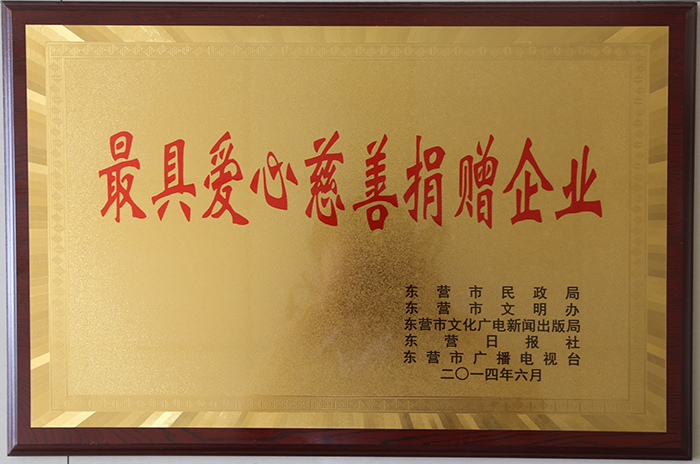 最具爱心慈善捐赠企业
东营市民政局
东营市文明办
东营市文化广电新闻出版局
东营日报社
东营市广播电视台
二〇一四年六月